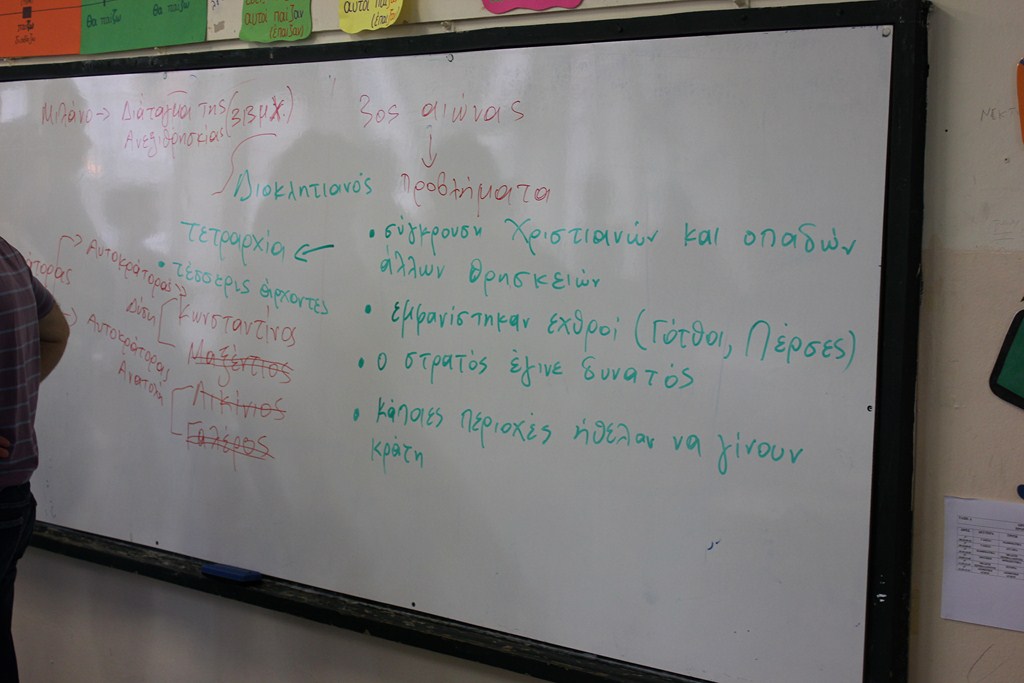 θα παίζω
θα παίξω
αυτοί παίζαν
(έπαιζαν)
αυτοί παίξαν
(έπαιξαν)
Μιλάνο → Διάταγμα της (313 μ.Χ.)
Ανεξιθρησκίας
3ος αιώνας
Διοκλητιανός
προβλήματα
τετραρχία ←
• τέσσερις άρχοντες
Αυτοκράτορας
Δύση
Κωνσταντίνος
Μαξέντιος
Αυτοκράτορας
Ανατολή
Λικίνιος
Γαλέριος
• σύγκρουση Χριστιανών και οπαδών
άλλων θρησκειών
• εμφανίστηκαν εχθροί (Γότθοι, Πέρσες)
• ο στρατός έγινε δυνατός
• κάποιες περιοχές ήθελαν να γίνουν
κράτη